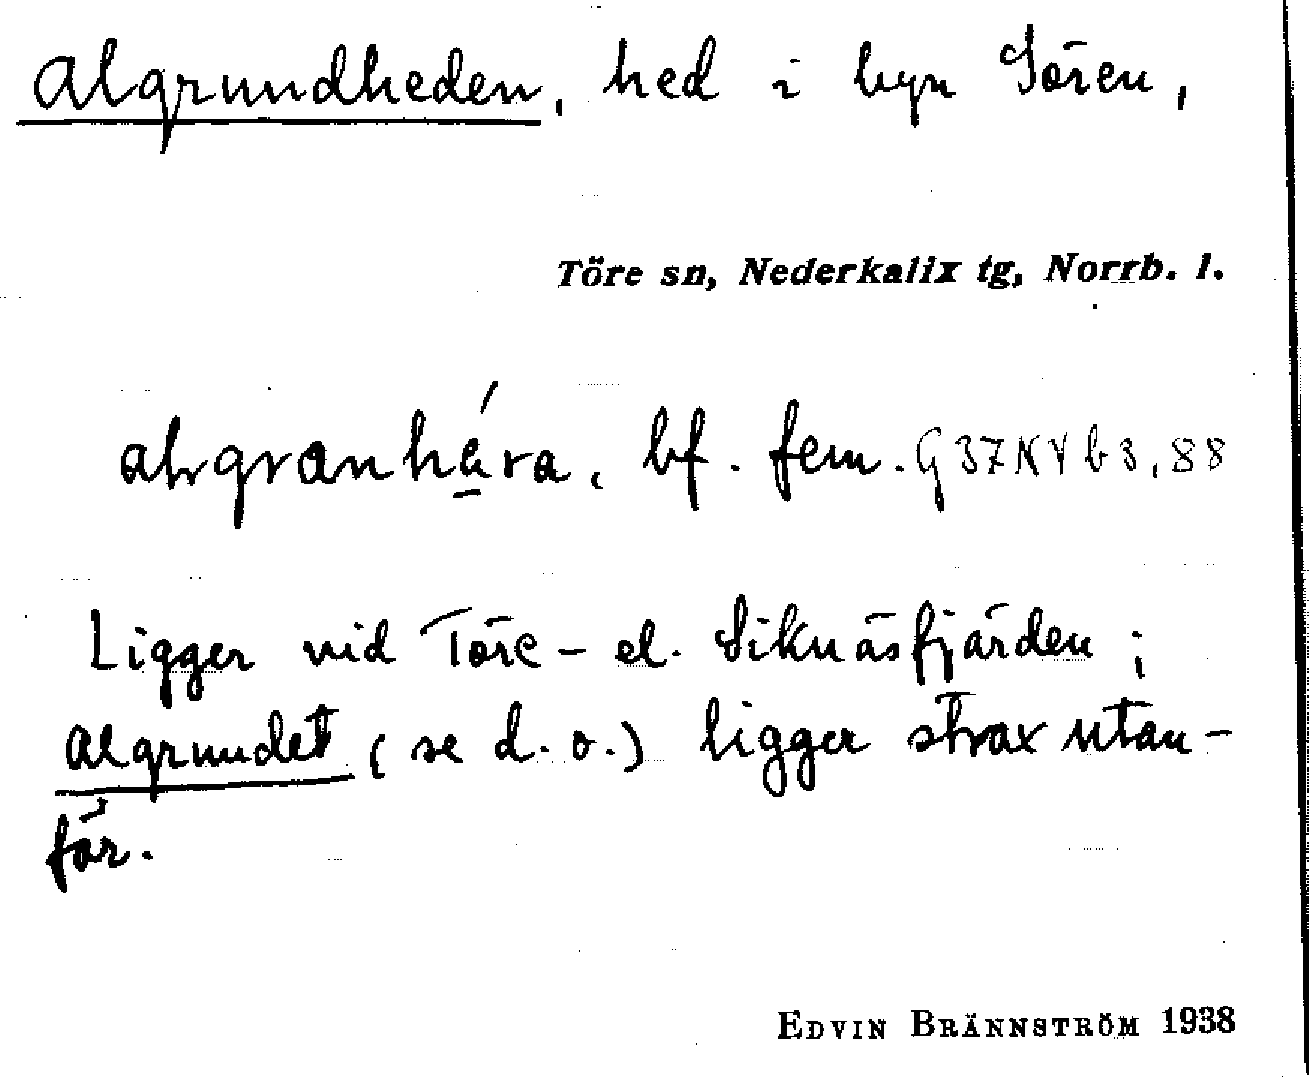 Algrundheden, hed i byn Sören,
Töre sn, Nederkalix tg, Norrb. l.
bf. fem. G37NVb3,88
Ligger vid Töre- el. Siknäsfjärden;
Algrundet (se d. o.) ligger strax utan-
för.
EDVIN BRÄNNSTRÖM 1938